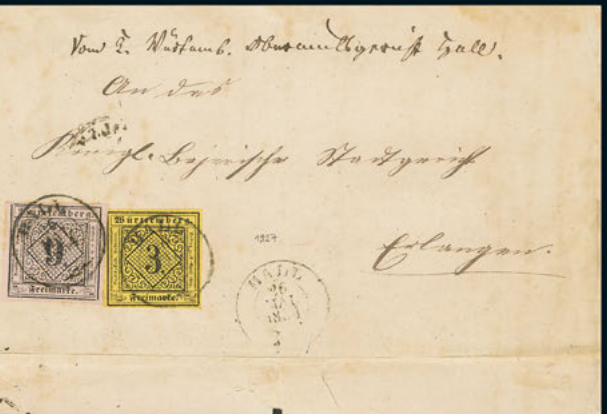 Vom K. Württemb. Oberamtsgericht Hall.
An das
Königl. Bayerische Stadtgericht
Erlangen.
Württemberg
9
Freimarke.
Württemberg
3
Freimarke.
1927
HALL
26